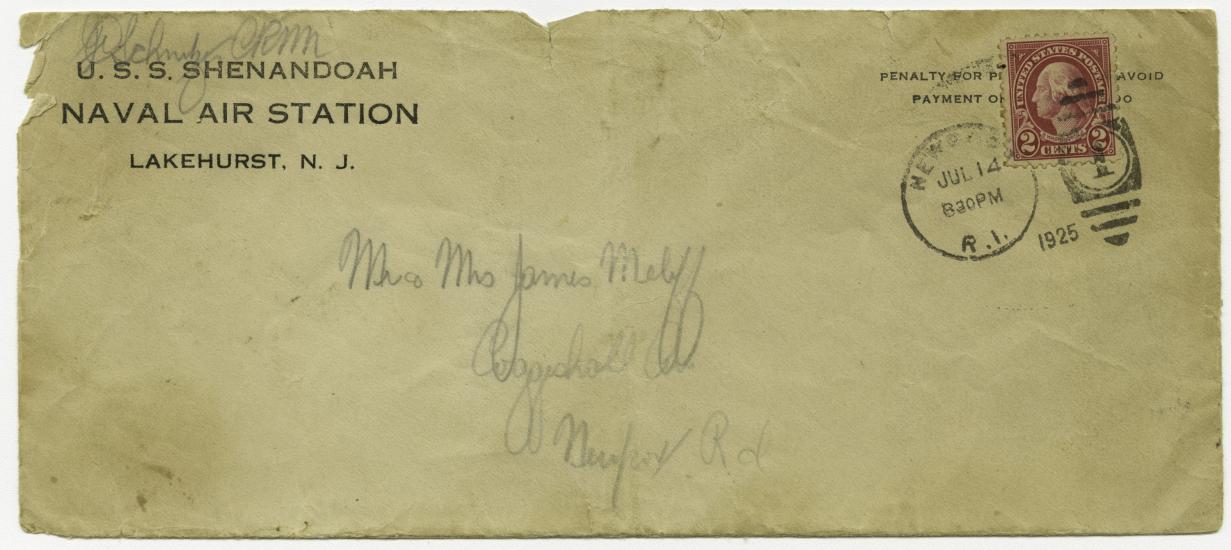 CRM
U. S. S. SHENANDOAH
NAVAL AIR STATION
LAKEHURST, N. J.
PENALTY FOR AVOID
PAYMENT
UNITED STATES POSTAGE
2 CENTS 2
NEWPORT
JUL 14
8 30 PM
R.I.
1925
Mr & Mrs James
Coggeshall Av
Newport R I